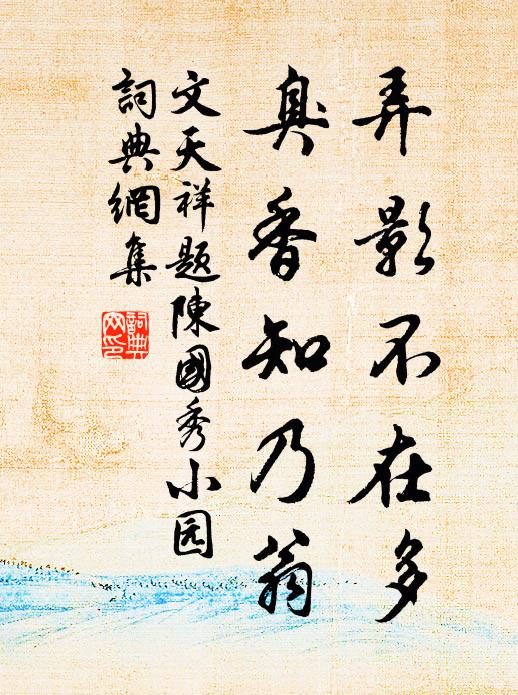 弄影不在多
臭香知乃翁
文天祥题陳國秀小园
詞典網集
詞典
网印